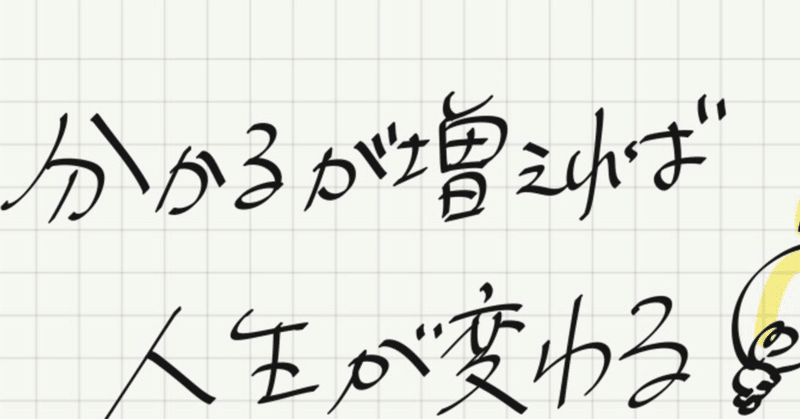 分かるが増えれば
人生が変わる